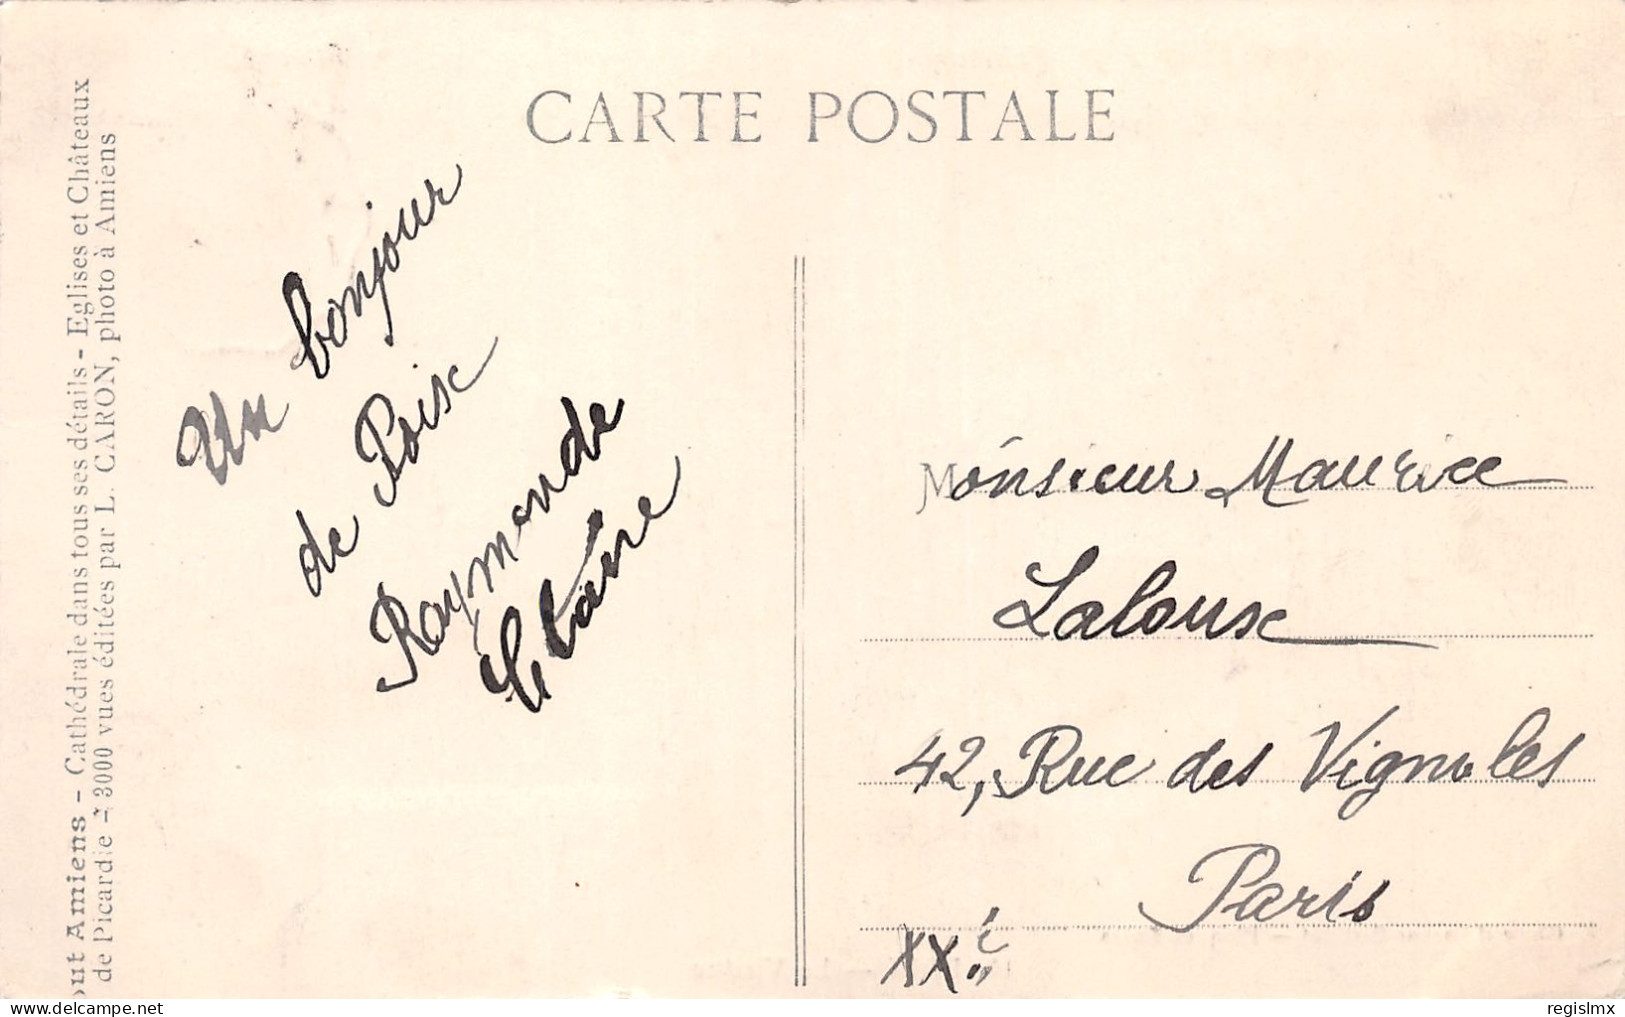 CARTE POSTALE
out Amiens - Cathédrale dans tous ses détails - Eglises et Châteaux
de Picardie - 3000 vues éditées par L. CARON, photo à Amiens
Un bonjour
de Poix
Raymonde
Monsieur Maurice
Laloux
42, Rue des Vignoles
Paris
XXè
regislmx